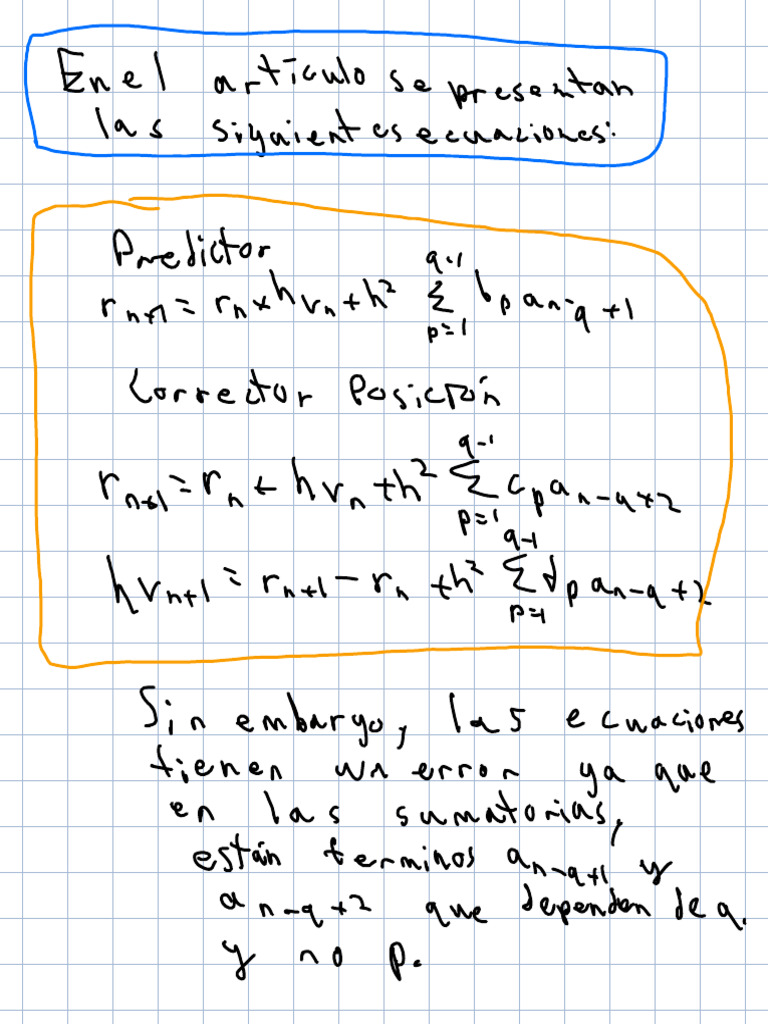 En el artículo se presentan
las siguientes ecuaciones:
Predictor
r_{n+1} = r_n + h v_n + h^2 \sum_{p=1}^{q-1} b_p a_{n-q+1}
Corrector Posición
r_{n+1} = r_n + h v_n + h^2 \sum_{p=1}^{q-1} c_p a_{n-q+2}
h v_{n+1} = r_{n+1} - r_n + h^2 \sum_{p=1}^{q-1} d_p a_{n-q+2}
Sin embargo, las ecuaciones
tienen un error ya que
en las sumatorias,
están terminos a_{n-q+1} y
a_{n-q+2} que dependen de q.
y no p.